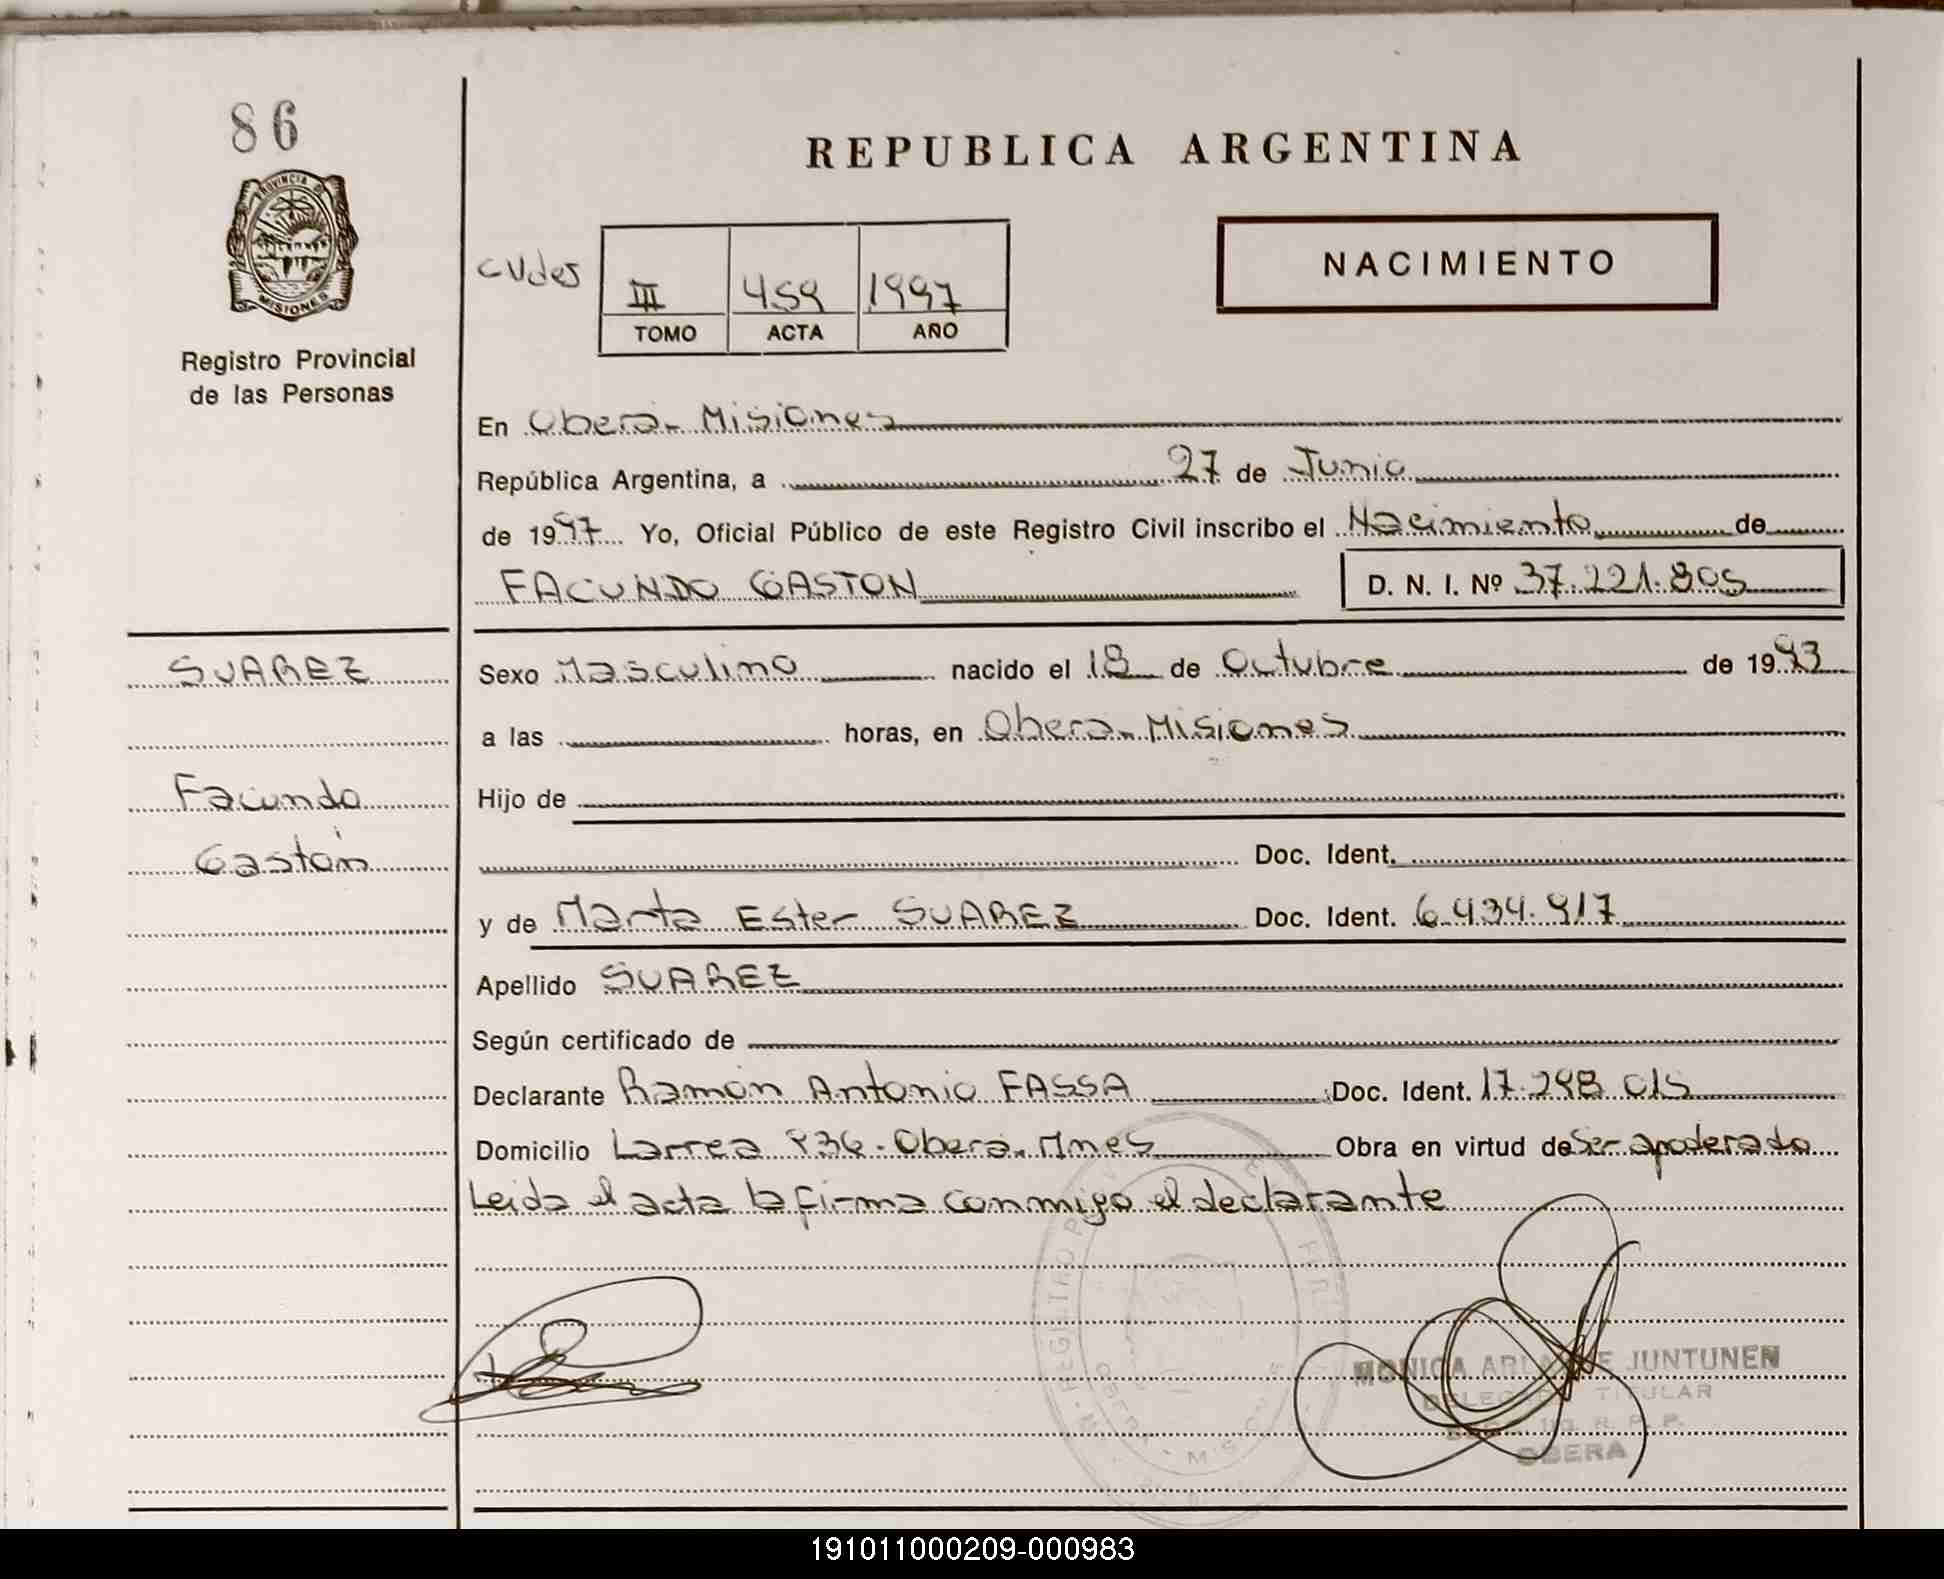 86
PROVINCIA DE
MISIONES
Registro Provincial
de las Personas
REPUBLICA ARGENTINA
III 459 1997
TOMO ACTA AÑO
NACIMIENTO
En Obera - Misiones
República Argentina, a 27 de Junio
de 1997 Yo, Oficial Público de este Registro Civil inscribo el Nacimiento de
FACUNDO GASTON D. N. I. Nº 37.221.805
SUAREZ
Facundo
Gastón
Sexo Masculino nacido el 18 de Octubre de 1993
a las horas, en Obera - Misiones
Hijo de
Doc. Ident.
y de Marta Ester SUAREZ Doc. Ident. 6.434.917
Apellido SUAREZ
Según certificado de
Declarante Ramón Antonio FASSA Doc. Ident. 17.298.015
Domicilio Larrea 936 - Obera - Mnes Obra en virtud de Ser apoderado
Leida el acta la firma conmigo el declarante
MONICA JUNTUNEN
TITULAR
R. P. P.
OBERA
191011000209-000983